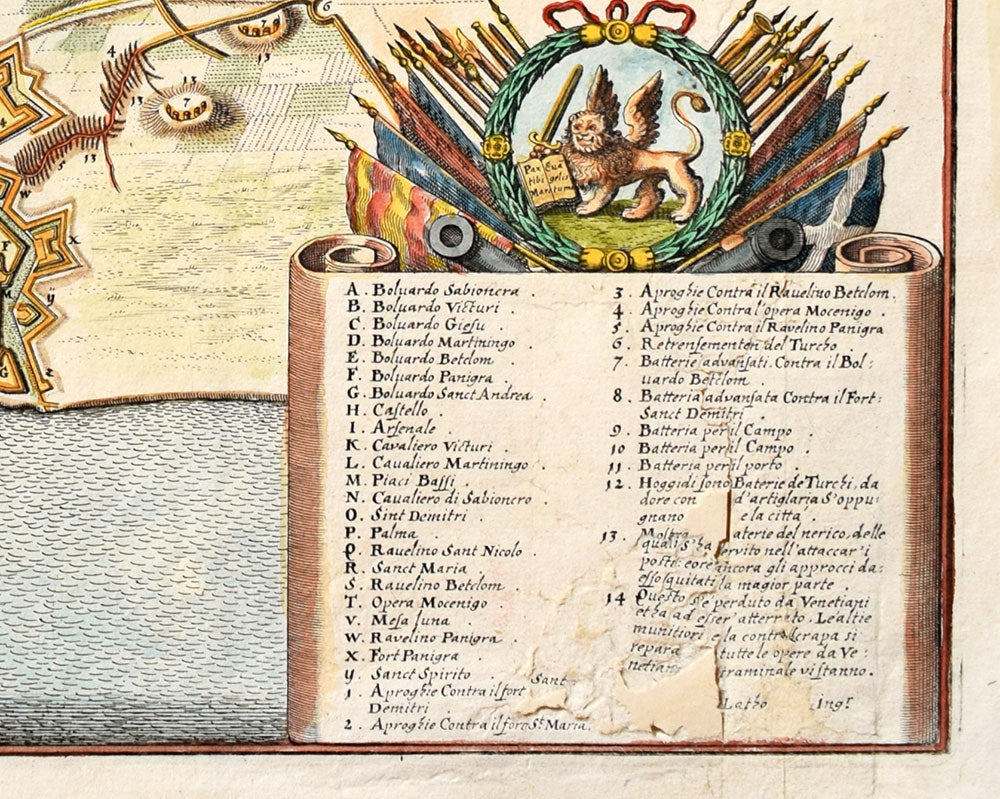 6
7
13
4
13
7
13
4
5
13
W
X
F
M
y
G
z
Pax Eua
tibi gelis
Mar tum
A. Boluardo Sabionera.
B. Boluardo Victuri.
C. Boluardo Giesu.
D. Boluardo Martiningo.
E. Boluardo Betelom.
F. Boluardo Panigra.
G. Boluardo Sanct Andrea.
H. Castello.
I. Arsenale.
K. Cavaliero Victuri.
L. Cavaliero Martiningo.
M. Piaci Bassi.
N. Cavaliero di Sabionero.
O. Sint Demitri.
P. Palma.
Q. Ravelino Sant Nicolo.
R. Sanct Maria.
S. Ravelino Betelom.
T. Opera Mocenigo.
V. Mesa luna.
W. Ravelino Panigra.
X. Fort Panigra.
y. Sanct Spirito.
1. Aproghie Contra il fort Sant
Demitri.
2. Aproghie Contra il fort St. Maria.
3. Aproghie Contra il Ravelino Betelom.
4. Aproghie Contra l'opera Mocenigo.
5. Aproghie Contra il Ravelino Panigra
6. Retrensementen del Turcho.
7. Batterie advansati Contra il Bol:
uardo Betelom.
8. Batteria advansata Contra il Fort:
Sanct Demitri.
9. Batteria per il Campo.
10 Batteria per il Campo.
11. Batteria per il porto.
12. Hoggidi sono Baterie de Turchi, da
dore con d'artiglaria S'oppu:
gnano e la citta.
13. Mostra aterie del nerico, delle
quali s'ha ervito nell'attaccar'i
posti: eore ancora gli approcci da:
esso quitati la magior parte.
14 Questo s'e perduto da Venetiani
et ha ad esser' atterrato. Le altie
munitiori e la contrascrapa si
repara tutte le opere da Ve:
netiani traminale vi stanno.
Latho Ingr.